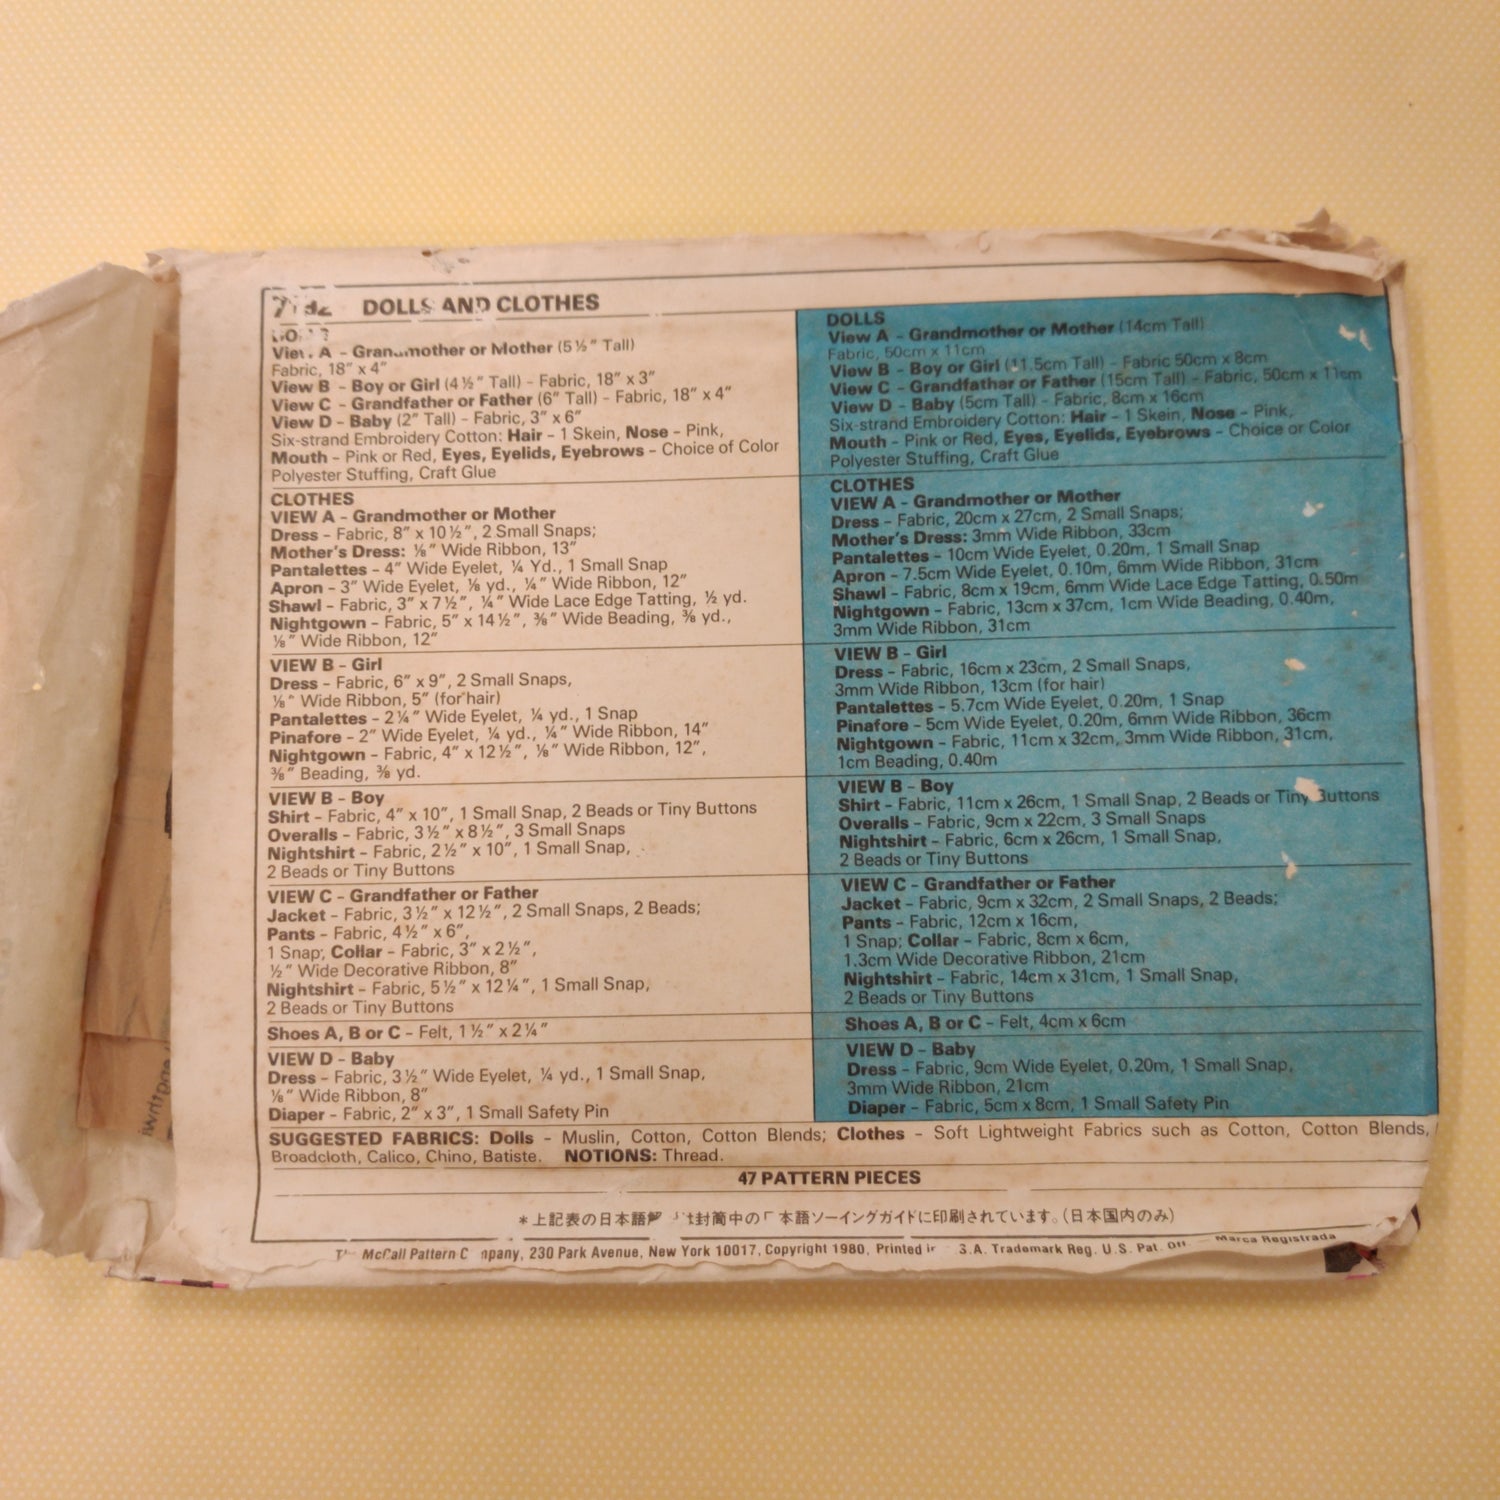 DOLLS AND CLOTHES
View A - Grandmother or Mother (5½" Tall)
Fabric, 18" x 4"
View B - Boy or Girl (4½" Tall) - Fabric, 18" x 3"
View C - Grandfather or Father (6" Tall) - Fabric, 18" x 4"
View D - Baby (2" Tall) - Fabric, 3" x 6"
Six-strand Embroidery Cotton: Hair - 1 Skein, Nose - Pink,
Mouth - Pink or Red, Eyes, Eyelids, Eyebrows - Choice of Color
Polyester Stuffing, Craft Glue
CLOTHES
VIEW A - Grandmother or Mother
Dress - Fabric, 8" x 10½", 2 Small Snaps;
Mother's Dress: ⅛" Wide Ribbon, 13"
Pantalettes - 4" Wide Eyelet, ¼ Yd., 1 Small Snap
Apron - 3" Wide Eyelet, ⅛ yd., ¼" Wide Ribbon, 12"
Shawl - Fabric, 3" x 7½", ¼" Wide Lace Edge Tatting, ½ yd.
Nightgown - Fabric, 5" x 14½", ⅜" Wide Beading, ⅜ yd.,
⅛" Wide Ribbon, 12"
VIEW B - Girl
Dress - Fabric, 6" x 9", 2 Small Snaps,
⅛" Wide Ribbon, 5" (for hair)
Pantalettes - 2¼" Wide Eyelet, ¼ yd., 1 Snap
Pinafore - 2" Wide Eyelet, ¼ yd., ¼" Wide Ribbon, 14"
Nightgown - Fabric, 4" x 12½", ⅛" Wide Ribbon, 12",
⅜" Beading, ⅜ yd.
VIEW B - Boy
Shirt - Fabric, 4" x 10", 1 Small Snap, 2 Beads or Tiny Buttons
Overalls - Fabric, 3½" x 8½", 3 Small Snaps
Nightshirt - Fabric, 2½" x 10", 1 Small Snap,
2 Beads or Tiny Buttons
VIEW C - Grandfather or Father
Jacket - Fabric, 3½" x 12½", 2 Small Snaps, 2 Beads;
Pants - Fabric, 4½" x 6",
1 Snap; Collar - Fabric, 3" x 2½",
½" Wide Decorative Ribbon, 8"
Nightshirt - Fabric, 5½" x 12¼", 1 Small Snap,
2 Beads or Tiny Buttons
Shoes A, B or C - Felt, 1½" x 2¼"
VIEW D - Baby
Dress - Fabric, 3½" Wide Eyelet, ¼ yd., 1 Small Snap,
⅛" Wide Ribbon, 8"
Diaper - Fabric, 2" x 3", 1 Small Safety Pin
DOLLS
View A - Grandmother or Mother (14cm Tall)
Fabric, 50cm x 11cm
View B - Boy or Girl (11.5cm Tall) - Fabric 50cm x 8cm
View C - Grandfather or Father (15cm Tall) - Fabric, 50cm x 11cm
View D - Baby (5cm Tall) - Fabric, 8cm x 16cm
Six-strand Embroidery Cotton: Hair - 1 Skein, Nose - Pink,
Mouth - Pink or Red, Eyes, Eyelids, Eyebrows - Choice or Color
Polyester Stuffing, Craft Glue
CLOTHES
VIEW A - Grandmother or Mother
Dress - Fabric, 20cm x 27cm, 2 Small Snaps;
Mother's Dress: 3mm Wide Ribbon, 33cm
Pantalettes - 10cm Wide Eyelet, 0.20m, 1 Small Snap
Apron - 7.5cm Wide Eyelet, 0.10m, 6mm Wide Ribbon, 31cm
Shawl - Fabric, 8cm x 19cm, 6mm Wide Lace Edge Tatting, 0.50m
Nightgown - Fabric, 13cm x 37cm, 1cm Wide Beading, 0.40m,
3mm Wide Ribbon, 31cm
VIEW B - Girl
Dress - Fabric, 16cm x 23cm, 2 Small Snaps,
3mm Wide Ribbon, 13cm (for hair)
Pantalettes - 5.7cm Wide Eyelet, 0.20m, 1 Snap
Pinafore - 5cm Wide Eyelet, 0.20m, 6mm Wide Ribbon, 36cm
Nightgown - Fabric, 11cm x 32cm, 3mm Wide Ribbon, 31cm,
1cm Beading, 0.40m
VIEW B - Boy
Shirt - Fabric, 11cm x 26cm, 1 Small Snap, 2 Beads or Tiny Buttons
Overalls - Fabric, 9cm x 22cm, 3 Small Snaps
Nightshirt - Fabric, 6cm x 26cm, 1 Small Snap,
2 Beads or Tiny Buttons
VIEW C - Grandfather or Father
Jacket - Fabric, 9cm x 32cm, 2 Small Snaps, 2 Beads;
Pants - Fabric, 12cm x 16cm,
1 Snap; Collar - Fabric, 8cm x 6cm,
1.3cm Wide Decorative Ribbon, 21cm
Nightshirt - Fabric, 14cm x 31cm, 1 Small Snap,
2 Beads or Tiny Buttons
Shoes A, B or C - Felt, 4cm x 6cm
VIEW D - Baby
Dress - Fabric, 9cm Wide Eyelet, 0.20m, 1 Small Snap,
3mm Wide Ribbon, 21cm
Diaper - Fabric, 5cm x 8cm, 1 Small Safety Pin
SUGGESTED FABRICS: Dolls - Muslin, Cotton, Cotton Blends; Clothes - Soft Lightweight Fabrics such as Cotton, Cotton Blends,
Broadcloth, Calico, Chino, Batiste. NOTIONS: Thread.
47 PATTERN PIECES
*上記表の日本語 封筒中の 本語ソーイングガイドに印刷されています。(日本国内のみ)
McCall Pattern Company, 230 Park Avenue, New York 10017, Copyright 1980, Printed in Trademark Reg. U.S. Pat. Off. Marca Registrada